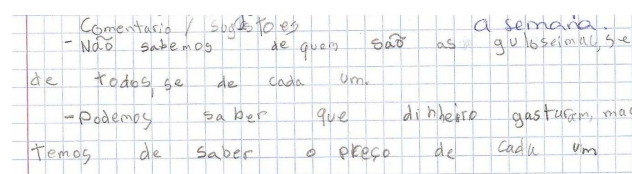 Comentario / sugestões
a semana.
- Não sabemos de quem são as guloseimas, se
de todos, se de cada um.
- Podemos saber que dinheiro gasturam, mas
temos de saber o preço de cada um